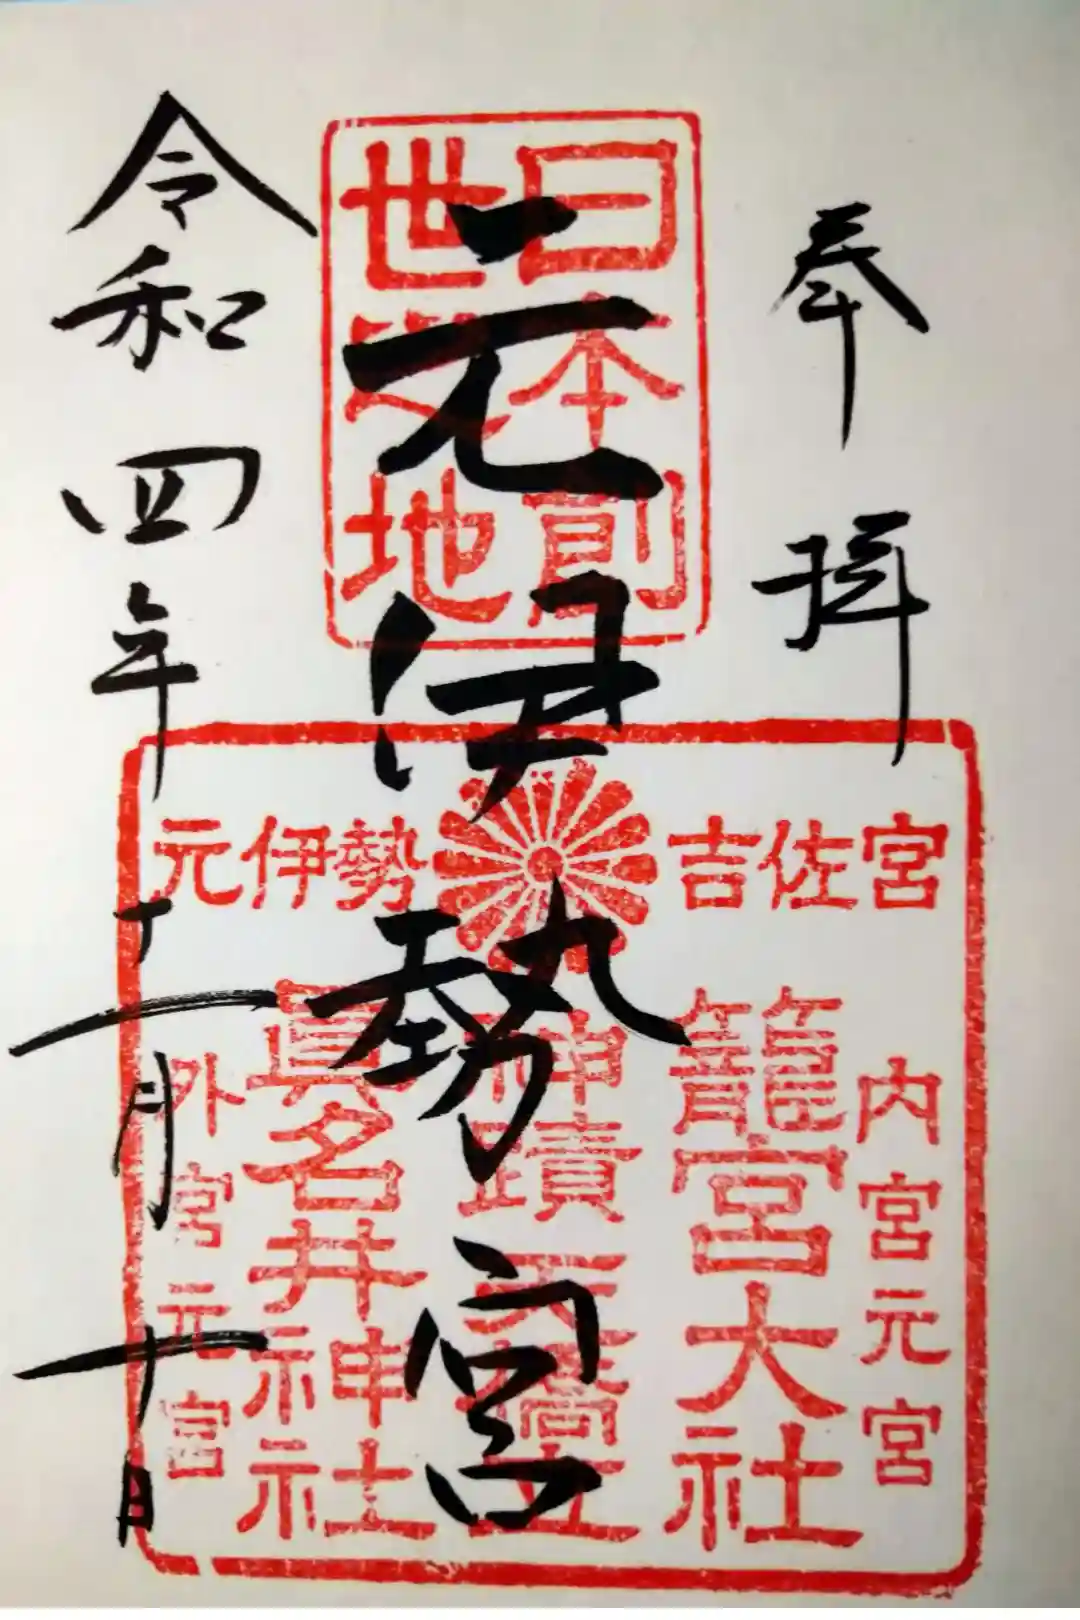 奉拝
日本創
世之地
元伊勢宮
元伊勢 吉佐宮
内宮元宮
籠宮大社
神蹟天橋立
眞名井神社
外宮元宮
令和四年十一月十日